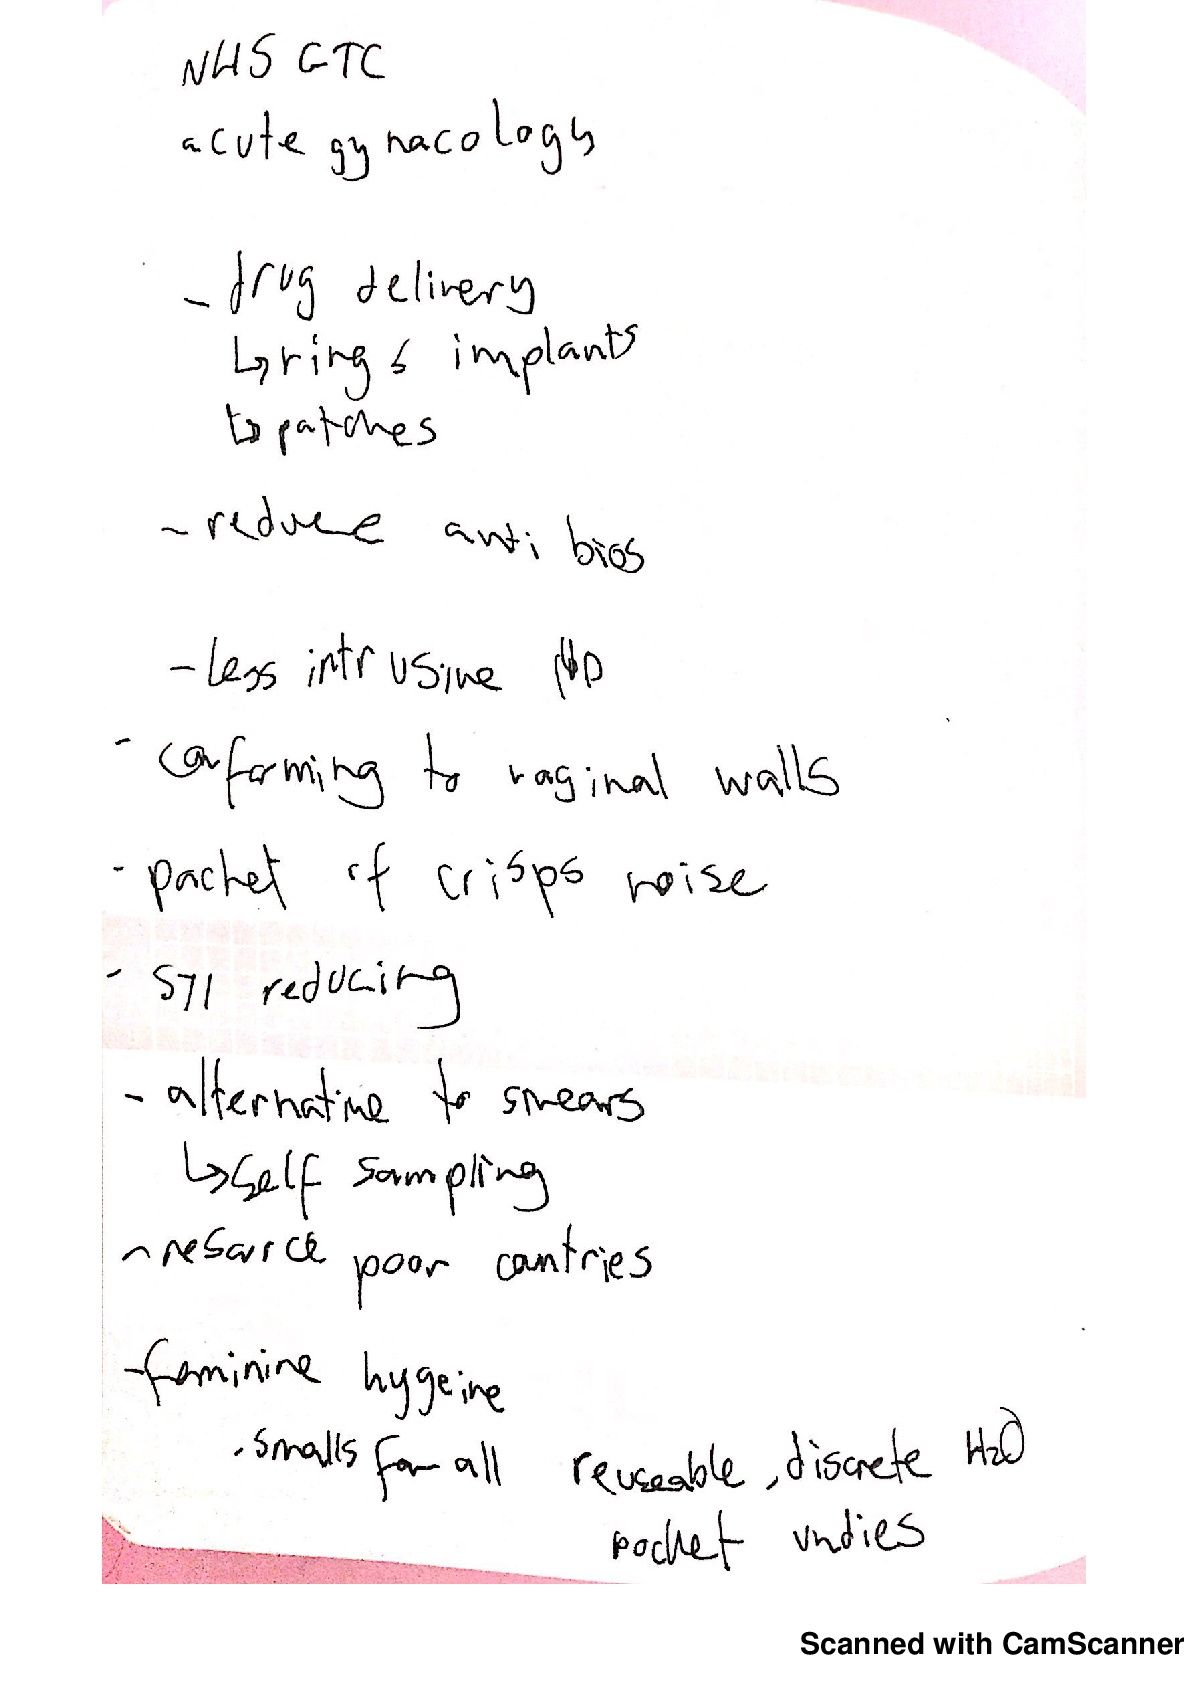 NHS GTC
acute gynacology
- drug delivery
↳ rings implants
↳ patches
- reduce anti bios
- less intrusive
- conforming to vaginal walls
- packet of crisps noise
- STI reducing
- alternative to smears
↳ self sampling
- resource poor countries
- feminine hygeine
. smalls for all reuseable, discrete H2O
pocket undies
Scanned with CamScanner